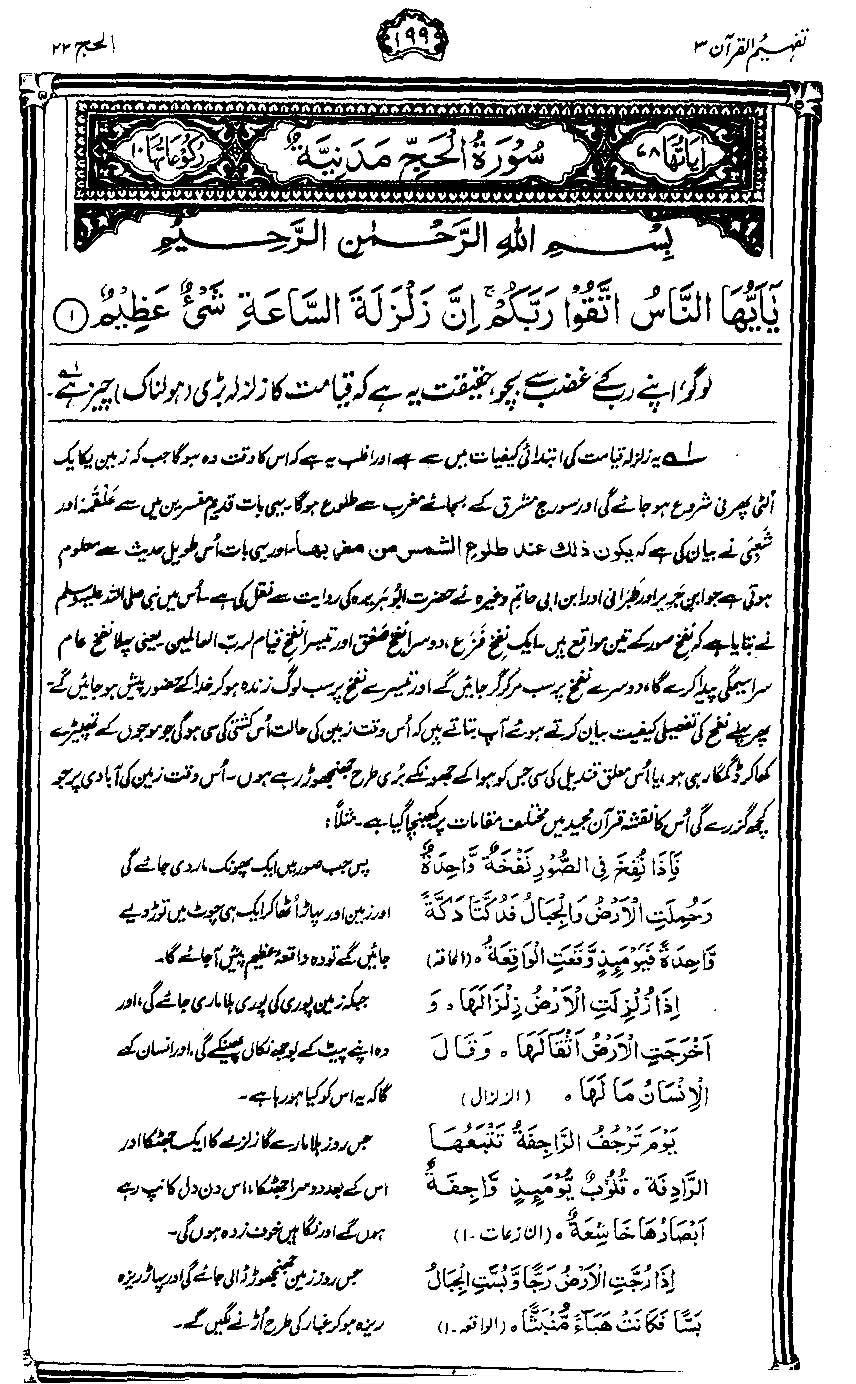 تفہیم القرآن ۳
۱۹۹
الحج ۲۲
اٰیَاتُهَا ۷۸
سُوْرَةُ الْحَجِّ مَدَنِيَّةٌ
رُكُوْعَاتُهَا ۱۰
بِسْمِ اللهِ الرَّحْمٰنِ الرَّحِيْمِ
يٰۤاَيُّهَا النَّاسُ اتَّقُوْا رَبَّكُمْ ۚ اِنَّ زَلْزَلَةَ السَّاعَةِ شَیْءٌ عَظِيْمٌ ۝۱
لوگو، اپنے رب کے غضب سے بچو، حقیقت یہ ہے کہ قیامت کا زلزلہ بڑی (ہولناک) چیز ہے۱؎۔
۱؎ یہ زلزلہ قیامت کی ابتدائی کیفیات میں سے ہے اور اغلب یہ ہے کہ اس کا وقت وہ ہوگا جب کہ زمین یکایک
الٹی پھرنی شروع ہو جائے گی اور سورج مشرق کے بجائے مغرب سے طلوع ہوگا۔ یہی بات قدیم مفسرین میں سے عَلْقَمہ اور
شَعْبِی نے بیان کی ہے کہ یکون ذلك عند طلوع الشمس من مغربها۔ اور یہی بات اُس طویل حدیث سے معلوم
ہوتی ہے جو ابن جریر اور طَبَرانی اور ابن ابی حاتم وغیرہ نے حضرت ابو ہریرہ کی روایت سے نقل کی ہے۔ اُس میں نبی صلی اللہ علیہ وسلم
نے بتایا ہے کہ نفخ صور کے تین مواقع ہیں۔ ایک نفخ فَزَع، دوسرا نفخ صَعْق اور تیسرا نفخ قیام لرب العالمین۔ یعنی پہلا نفخ عام
سراسیمگی پیدا کرے گا، دوسرے نفخ پر سب مر کر گر جائیں گے اور تیسرے نفخ پر سب لوگ زندہ ہو کر خدا کے حضور پیش ہو جائیں گے۔
پھر پہلے نفخ کی تفصیلی کیفیت بیان کرتے ہوئے آپ بتاتے ہیں کہ اُس وقت زمین کی حالت اُس کشتی کی سی ہوگی جو موجوں کے تھپیڑے
کھا کر ڈگمگا رہی ہو، یا اُس معلق قندیل کی سی جس کو ہوا کے جھونکے بُری طرح جھنجھوڑ رہے ہوں۔ اُس وقت زمین کی آبادی پر جو
کچھ گزرے گی اُس کا نقشہ قرآن مجید میں مختلف مقامات پر کھینچا گیا ہے۔ مثلاً:
فَاِذَا نُفِخَ فِي الصُّوْرِ نَفْخَةٌ وَّاحِدَةٌ
وَحُمِلَتِ الْاَرْضُ وَالْجِبَالُ فَدُكَّتَا دَكَّةً
وَّاحِدَةً فَيَوْمَىِٕذٍ وَّقَعَتِ الْوَاقِعَةُ ۝ (الحاقہ)
پس جب صور میں ایک پھونک مار دی جائے گی
اور زمین اور پہاڑ اُٹھا کر ایک ہی چوٹ میں توڑ دیے
جائیں گے تو وہ واقعۂ عظیم پیش آ جائے گا۔
اِذَا زُلْزِلَتِ الْاَرْضُ زِلْزَالَهَا ۝ وَ
اَخْرَجَتِ الْاَرْضُ اَثْقَالَهَا ۝ وَقَالَ
الْاِنْسَانُ مَا لَهَا ۝ (الزلزال)
جبکہ زمین پوری کی پوری ہلا ماری جائے گی، اور
وہ اپنے پیٹ کے بوجھ نکال پھینکے گی، اور انسان کہے
گا کہ یہ اس کو کیا ہو رہا ہے۔
يَوْمَ تَرْجُفُ الرَّاجِفَةُ تَتْبَعُهَا
الرَّادِفَةُ ۝ قُلُوْبٌ يَّوْمَىِٕذٍ وَّاجِفَةٌ
اَبْصَارُهَا خَاشِعَةٌ ۝ (النازعات۔۱)
جس روز ہلا مارے گا زلزلے کا ایک جھٹکا اور
اس کے بعد دوسرا جھٹکا، اس دن دل کانپ رہے
ہوں گے اور نگاہیں خوف زدہ ہوں گی۔
اِذَا رُجَّتِ الْاَرْضُ رَجًّا وَّبُسَّتِ الْجِبَالُ
بَسًّا فَكَانَتْ هَبَآءً مُّنْۢبَثًّا ۝ (الواقعہ۔۱)
جس روز زمین جھنجھوڑ ڈالی جائے گی اور پہاڑ ریزہ
ریزہ ہو کر غبار کی طرح اُڑنے لگیں گے۔